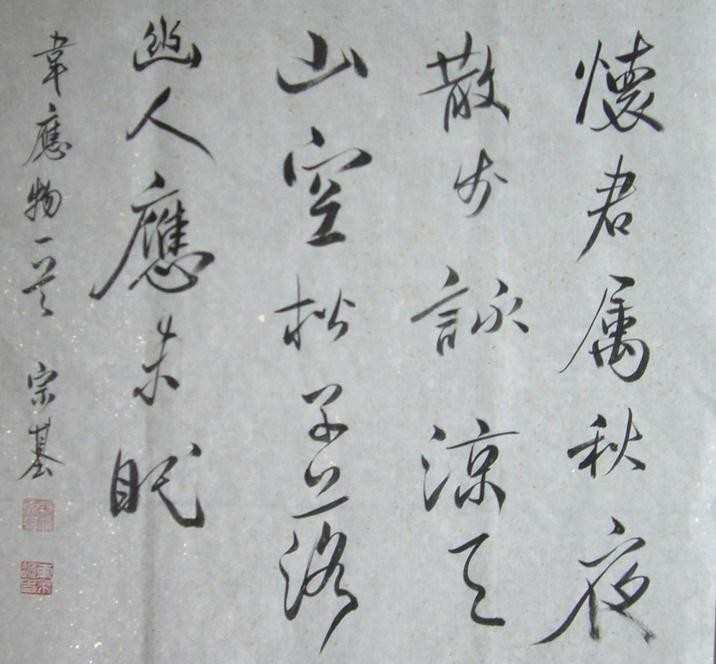 懷君属秋夜
散步詠涼天
山空松子落
幽人應未眠
韋應物一首 宗基